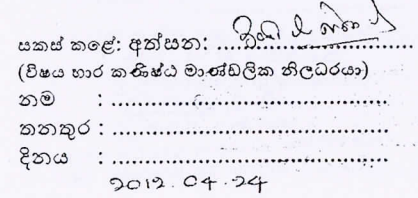 සකස් කළේ: අත්සන: ........................................
(විෂය භාර කණිෂ්ඨ මාණ්ඩලික නිලධරයා)
නම : ........................................
තනතුර : ........................................
දිනය : ........................................
2012.04.24